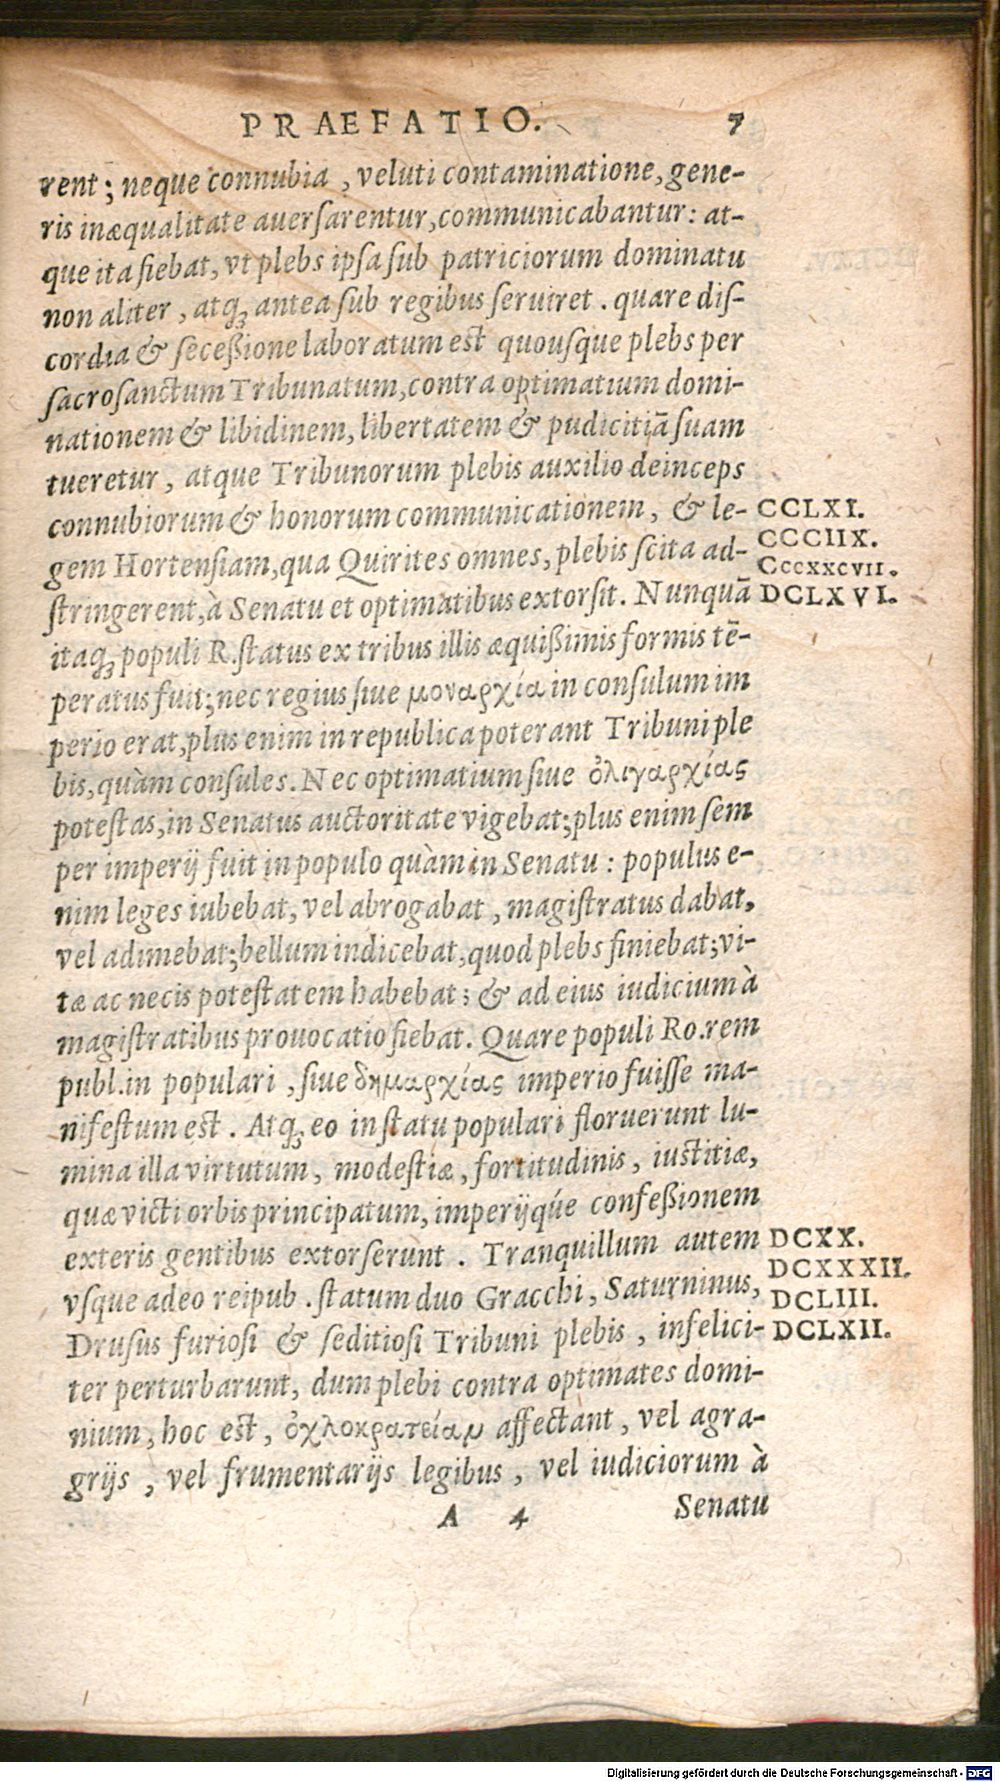 PRAEFATIO. 7
rent; neque connubia, veluti contaminatione, gene-
ris inæqualitate auersarentur, communicabantur: at-
que ita fiebat, vt plebs ipsa sub patriciorum dominatu
non aliter, atq; antea sub regibus seruiret. quare dis-
cordia & seceßione laboratum est quousque plebs per
sacrosanctum Tribunatum, contra optimatium domi-
nationem & libidinem, libertatem & pudicitiã suam
tueretur, atque Tribunorum plebis auxilio deinceps
connubiorum & honorum communicationem, & le- CCLXI.
gem Hortensiam, qua Quirites omnes, plebis scita ad- CCCIIX.
CccxxcvII.
stringerent, à Senatu et optimatibus extorsit. Nunquã DCLXVI.
itaq; populi R. status ex tribus illis æquißimis formis tẽ-
peratus fuit; nec regius siue μοναρχία in consulum im
perio erat, plus enim in republica poterant Tribuni ple
bis, quàm consules. Nec optimatium siue ὀλιγαρχίας
potestas, in Senatus auctoritate vigebat; plus enim sem
per imperij fuit in populo quàm in Senatu: populus e-
nim leges iubebat, vel abrogabat, magistratus dabat,
vel adimebat; bellum indicebat, quod plebs finiebat; vi-
tæ ac necis potestatem habebat; & ad eius iudicium à
magistratibus prouocatio fiebat. Quare populi Ro. rem
publ. in populari, siue δημαρχίας imperio fuisse ma-
nifestum est. Atq; eo in statu populari floruerunt lu-
mina illa virtutum, modestiæ, fortitudinis, iustitiæ,
quæ victi orbis principatum, imperijqúe confeßionem
exteris gentibus extorserunt. Tranquillum autem DCXX.
DCXXXII.
vsque adeo reipub. statum duo Gracchi, Saturninus, DCLIII.
Drusus furiosi & seditiosi Tribuni plebis, infelici- DCLXII.
ter perturbarunt, dum plebi contra optimates domi-
nium, hoc est, ὀχλοκρατείαμ affectant, vel agra-
grijs, vel frumentarijs legibus, vel iudiciorum à
A 4 Senatu
Digitalisierung gefördert durch die Deutsche Forschungsgemeinschaft - DFG